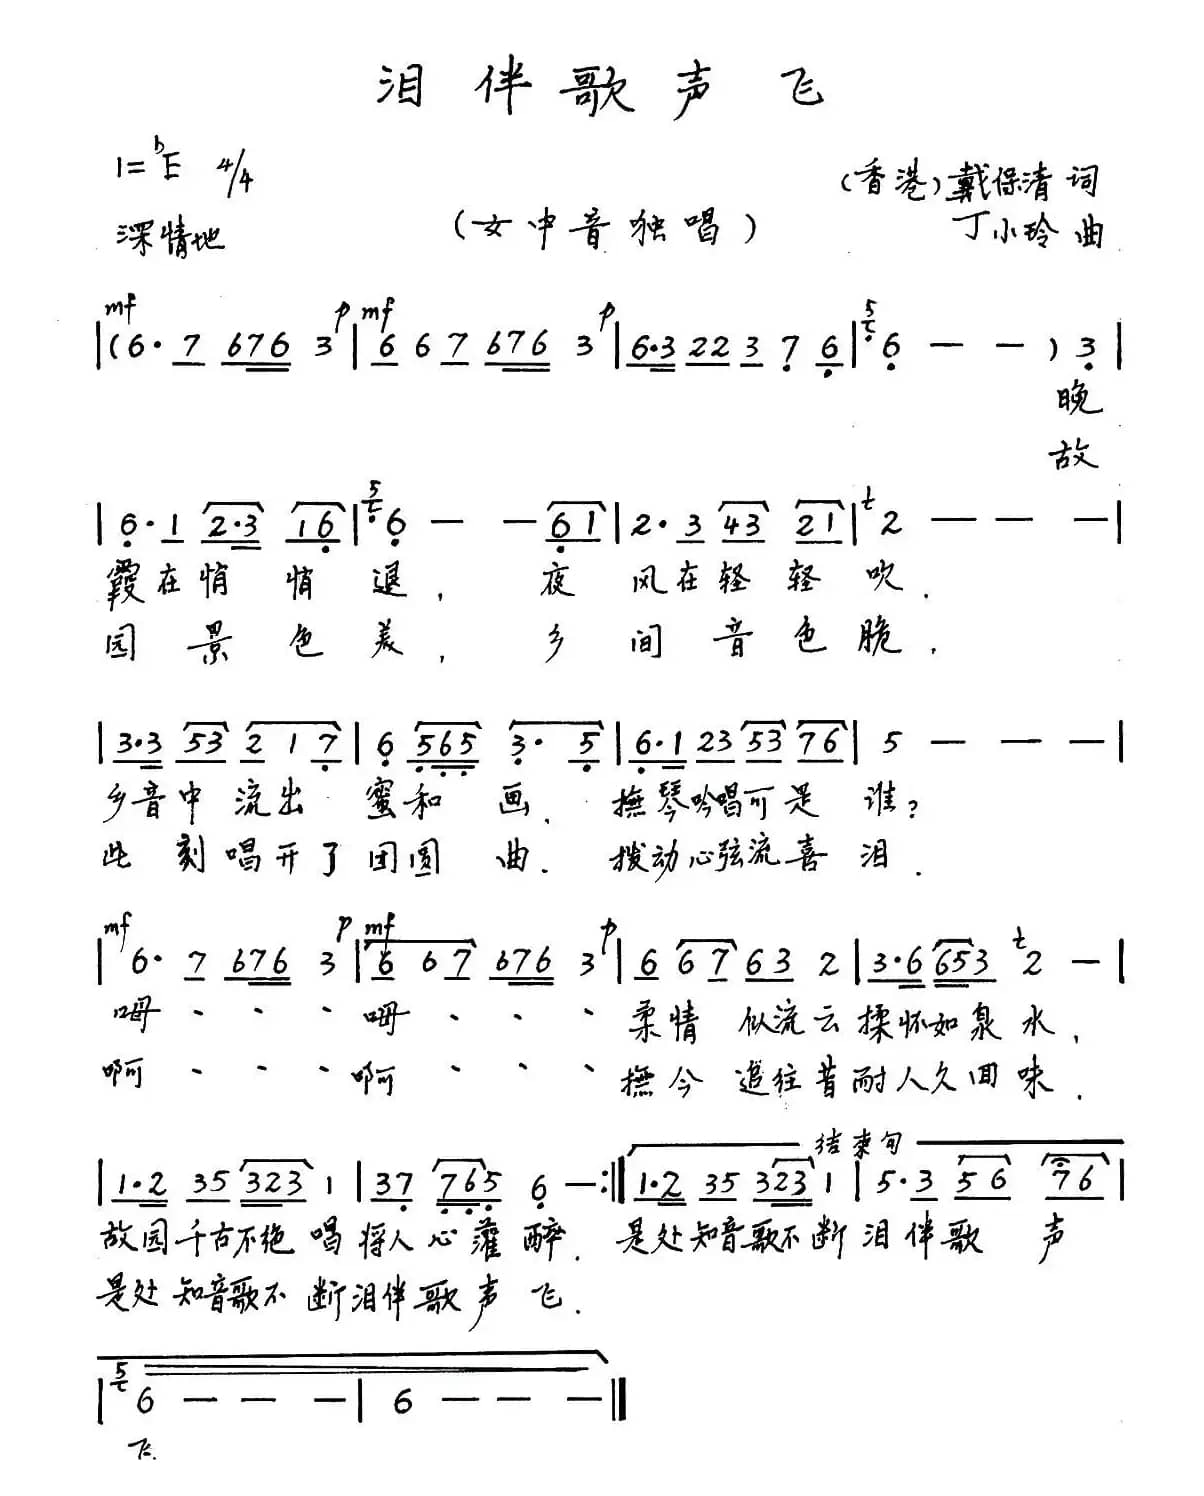 泪伴歌声飞
1=♭E 4/4
(香港)戴保清词
深情地
(女中音独唱)
丁小玲曲
mf p mf p
|(6· 7 676 3|6 6 7 676 3|6·3 22 3 7 6|6 — — ) 3|
晚
故
|6·1 2·3 16|6 — — 61|2·3 43 21|2 — — —|
霞在悄悄退，夜风在轻轻吹．
园景色美，乡间音色脆．
|3·3 53 2 1 7|6 565 3· 5|6·1 23 53 76|5 — — —|
乡音中流出蜜和画．抚琴吟唱可是谁？
此刻唱开了团圆曲．拨动心弦流喜泪．
mf p mf p
|6· 7 676 3|6 6 7 676 3|6 6 7 63 2|3·6 653 2 —|
呣、、、呣、、、柔情似流云揉怀如泉水，
啊、、、啊、、、抚今追往昔耐人久回味．
结束句
|1·2 35 323 1|37 765 6 —:‖1·2 35 323 1|5·3 56 76|
故园千古不绝唱将人心灌醉．是处知音歌不断泪伴歌声
是处知音歌不断泪伴歌声飞．
|6 — — —|6 — — —‖
飞．